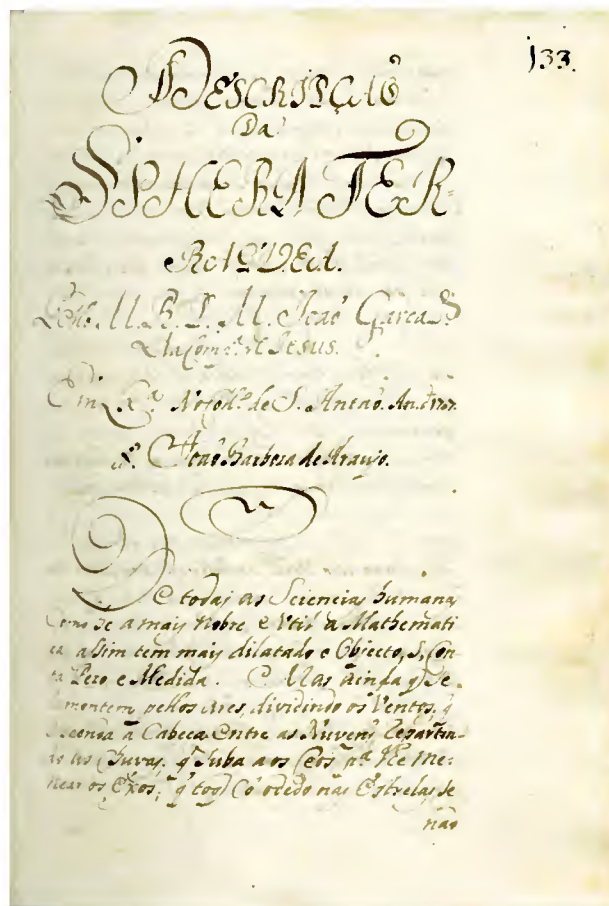 133.
DESCRIPÇAÕ
Da
SPHERA TER-
Pello M. R. P. M. Joaõ Garca
Da Comp.ª de Jesus.
Em Lx.ª No Coll.º de S. Antaõ. An. 1707.
Joaõ Barboza de Araujo.
De todas as Sciencias humanas
Como se a mays Nobre e Vtil a Mathemati
ca assim tem mays dilatado o Objecto, s, Con-
ta Pezo e Medida. Mas ainda q̃ Se
montem pellos Ares, dividindo os Ventos, q̃
a Cabeca entre as Nuvens
as Chuvas, q̃ Suba aos Ceos p.ª lhe me-
near os Exos, q̃ Cõ o dedo nas Estrelas, se
não